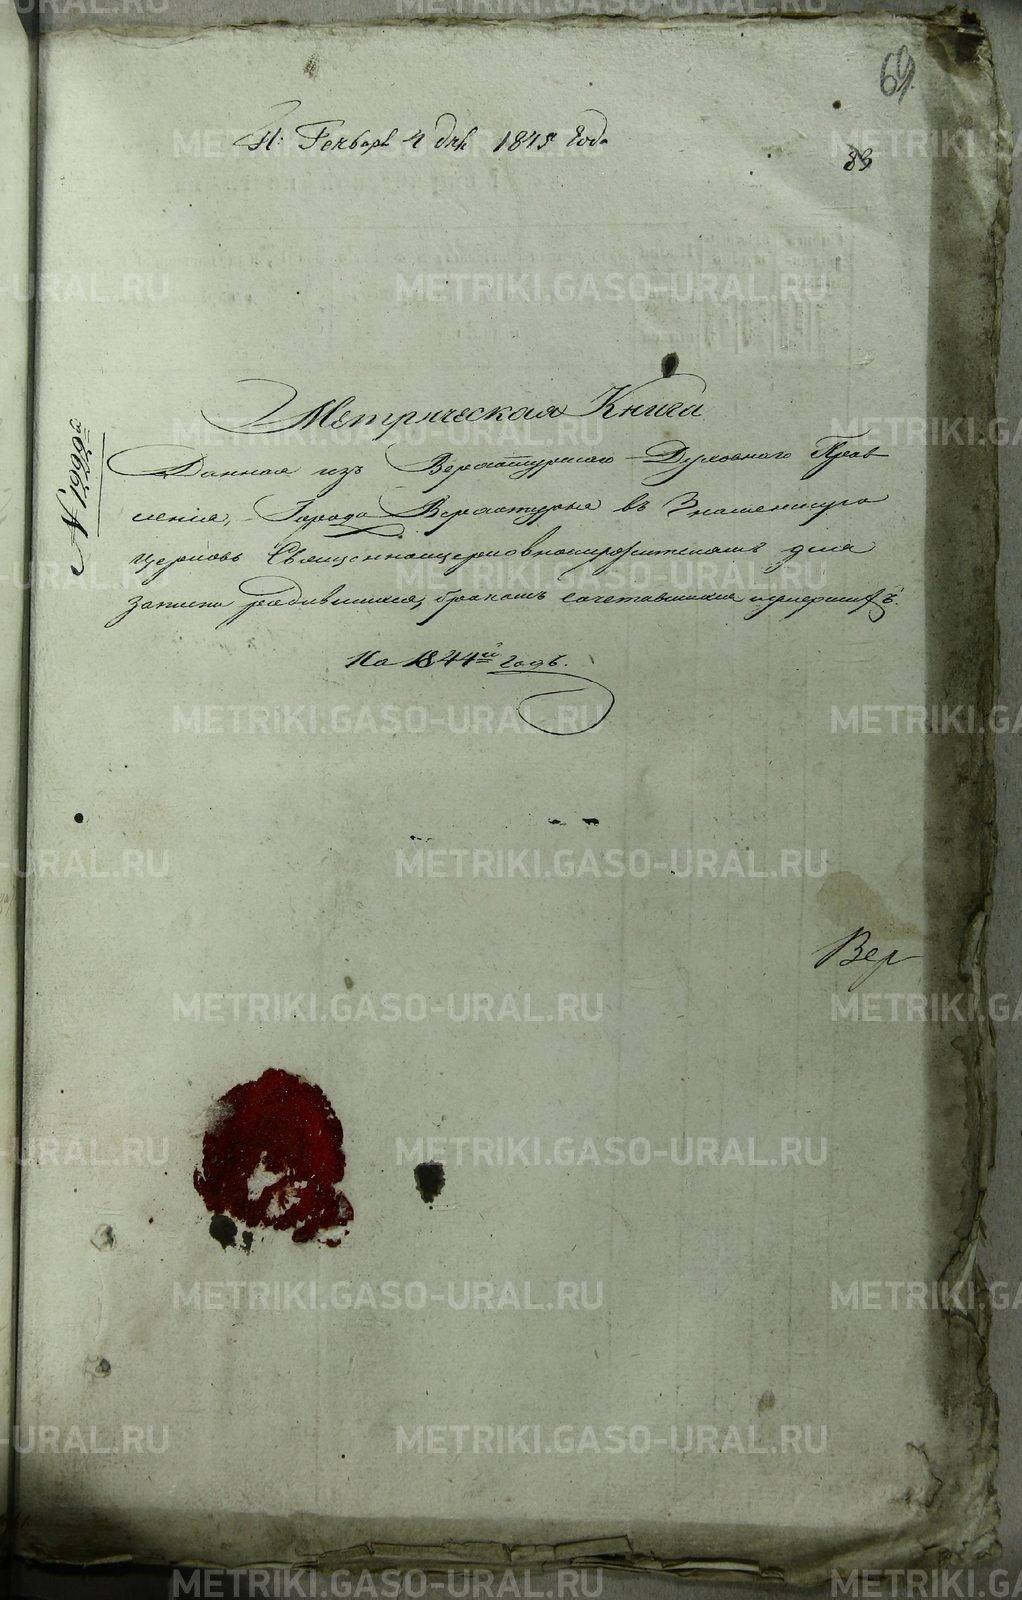 69
П: Генваря 4 дня 1845 года
83
№ 1999й
Метрическая Книга
Данная изъ Верхотурскаго Духовнаго Прав
ленія, Города Верхотурья въ Знаменскую
церковь Священноцерковнослужителямъ для
записки родившихся, бракомъ сочетавшихся и умершихъ.
На 1844й годъ.
Вер
METRIKI.GASO-URAL.RU